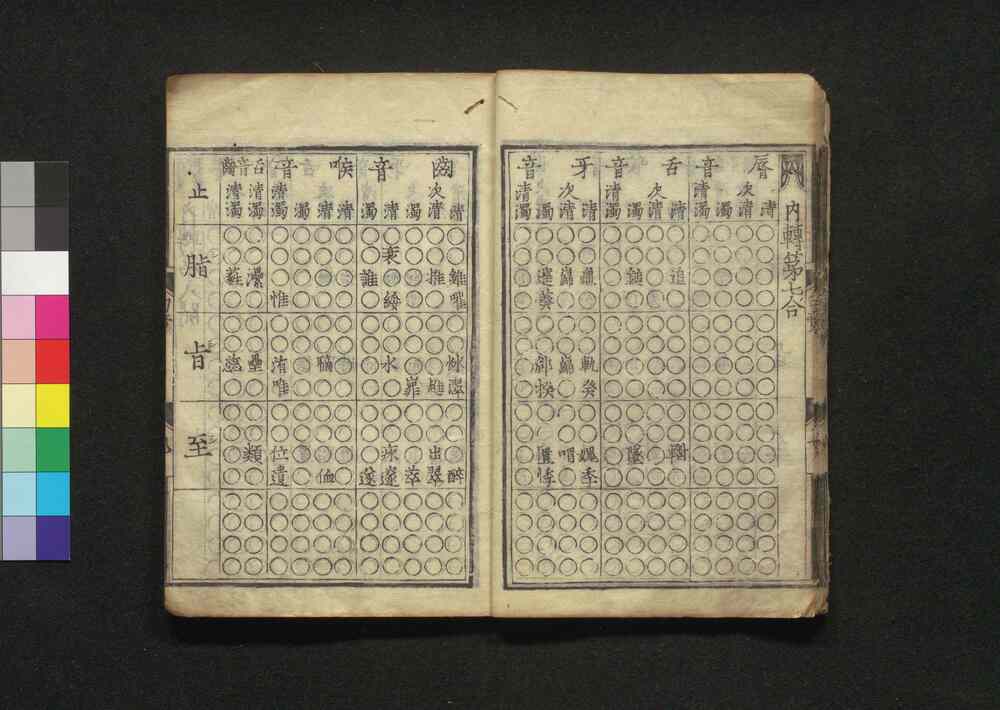 內轉第七合
脣音
清
次清
濁
清濁
舌音
清 追
次清
濁 鎚
清濁
牙音
清 龜 軌癸 媿季
次清 巋 巋 喟
濁 逵葵 揆 匱悸
清濁
齒音
清 錐 醉
次清 推 趡 出翠
濁 萃
清 衰綏 水 邃
濁 誰 遂
喉音
清
清 侐
濁
清濁 惟 洧唯 位遺
舌音
清濁 纍 壘 類
齒
清濁 蕤
止
脂
旨
至